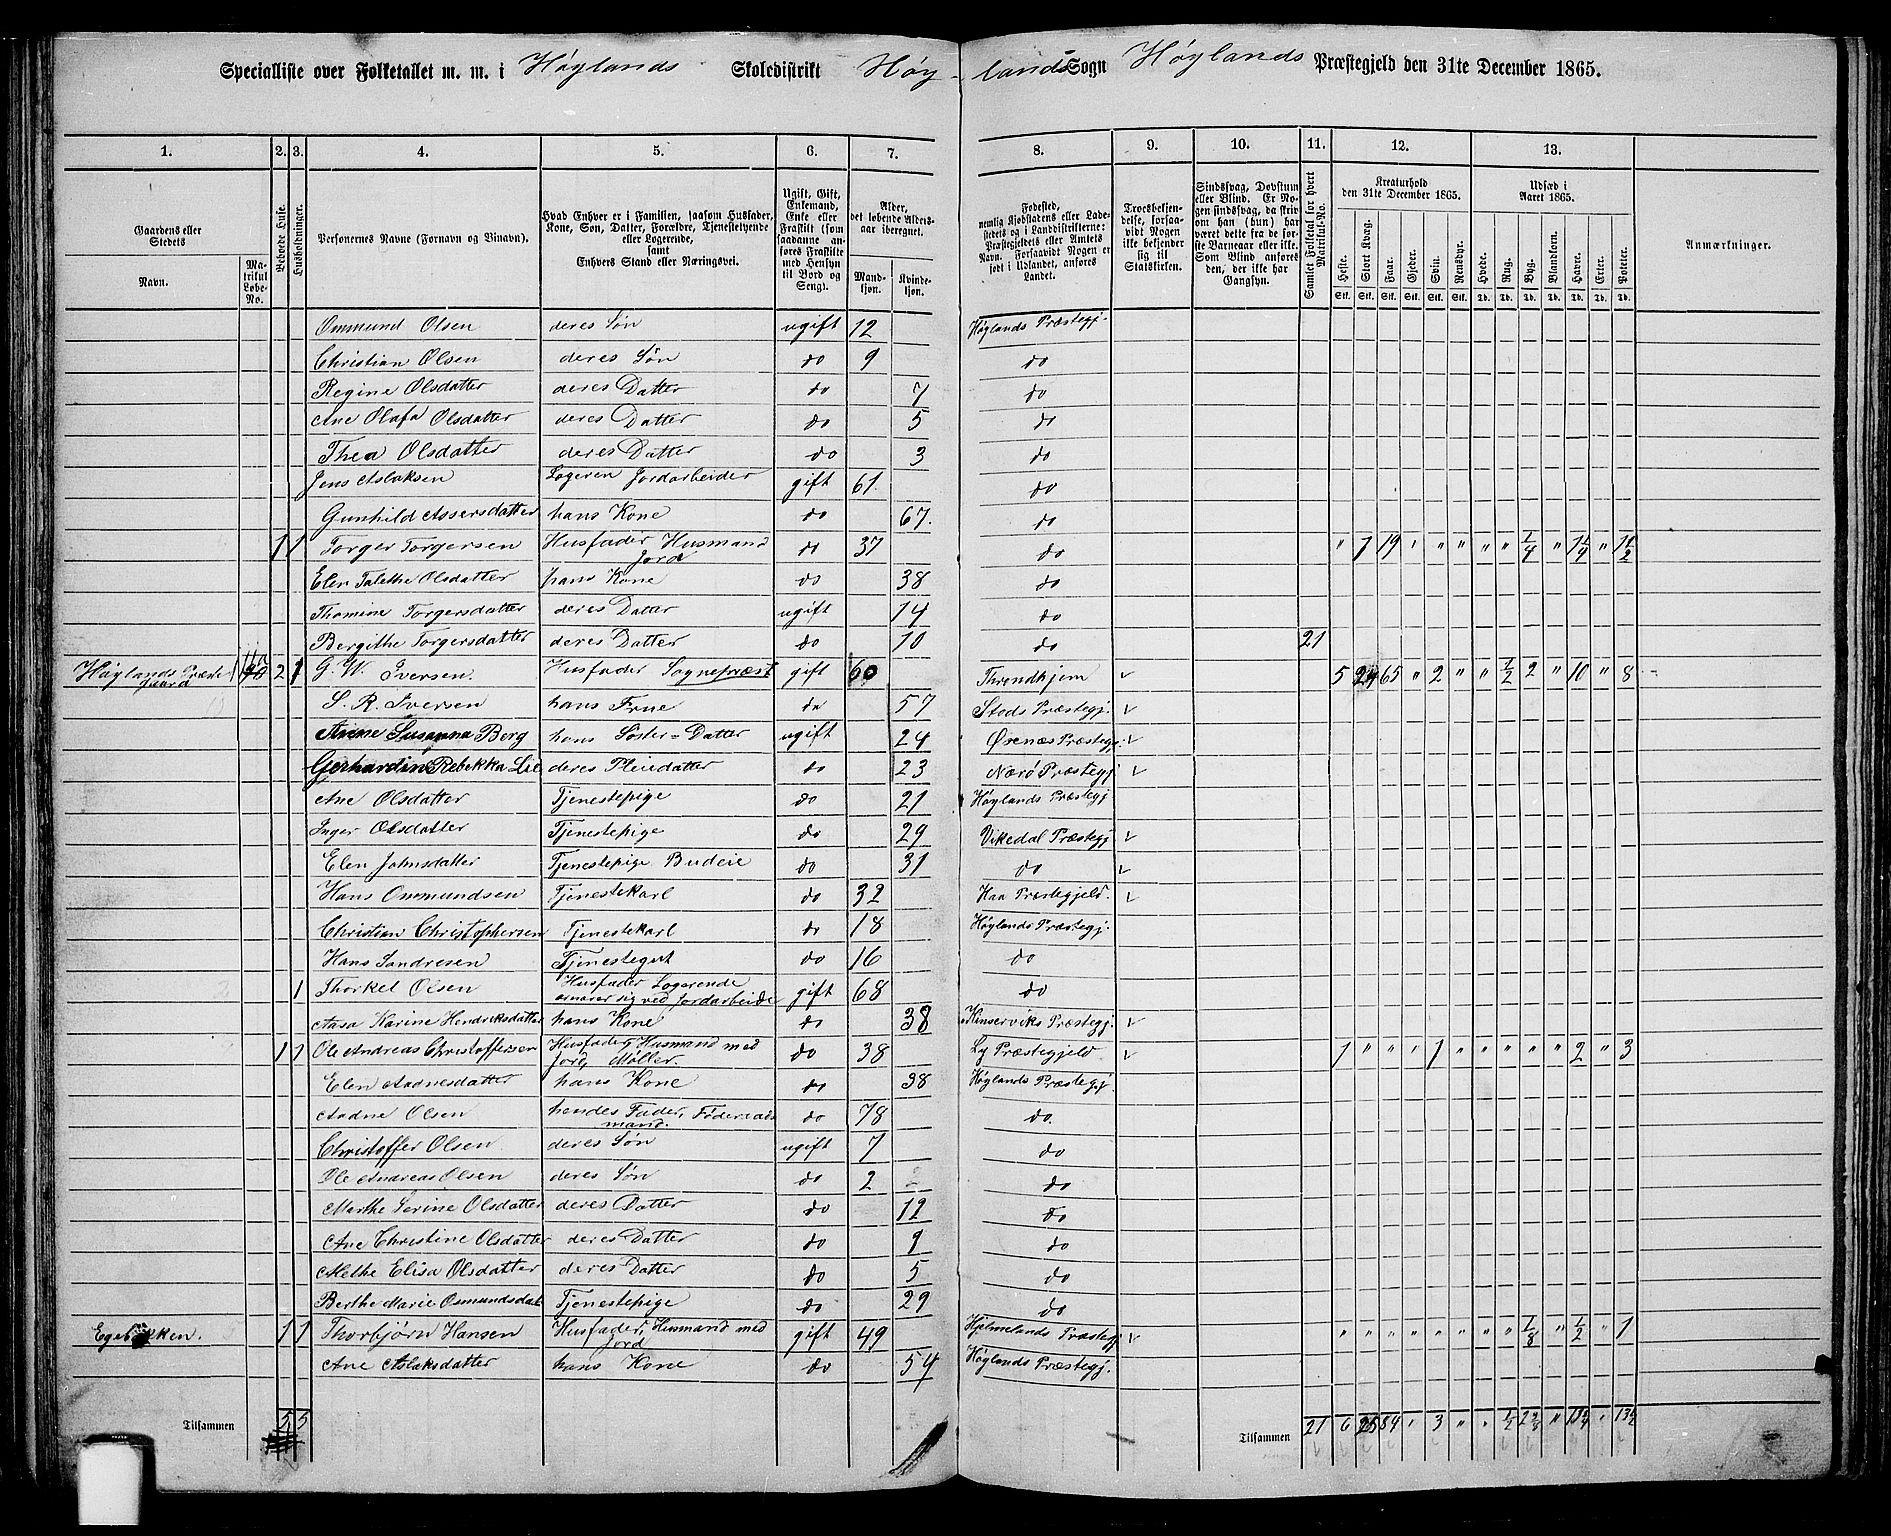 Specialliste over Folketallet m. m. i Høylands Skoledistrikt Høylands Sogn Høylands Præstegjeld den 31te December 1865.
1. 2. 3. 4. 5. 6. 7. 8. 9. 10. 11. 12. 13.
Gaardens eller Stedets
Navn.
Matrikul Løbe-No.
Beboede Huse.
Husholdninger.
Personernes Navne (Fornavn og Tilnavn).
Hvad Enhver er i Familien, saasom Husfader, Kone, Søn, Datter, Forældre, Tjenestetyende eller Logerende, samt Enhvers Stand eller Næringsvei.
Ugift, Gift, Enkemand, Enke eller Fraskilt (som saadanne anføres Fraskilte med Hensyn til Bord og Seng).
Alder, det løbende Aldersaar iberegnet.
Mandkjøn. Kvindekjøn.
Fødested, nemlig Kjøbstadens eller Ladestedets og i Landdistrikterne: Præstegjeldets eller Amtets Navn. Forsaavidt Nogen er født i Udlandet, anføres Landet.
Troesbekjendelse, forsaavidt Nogen ikke bekjender sig til Statskirken.
Sindssvag, Døvstum eller Blind. Er Nogen sindssvag, da skrives om han (hun) har været dette fra de første Barneaar eller ikke. Som Blind anføres den, der ikke har Gangsyn.
Samlet Folketal for hvert Matrikul-No.
Kreaturhold den 31te December 1865.
Heste. Stort Kvæg. Faar. Gjeder. Svin. Rensdyr.
Udsæd i Aaret 1865.
Hvede. Rug. Byg. Blandkorn. Havre. Erter. Poteter.
Anmærkninger.
Ommund Olsen deres Søn ugift 12 Høylands Præstegj.
Christian Olsen deres Søn do 9 do
Regine Olsdatter deres Datter do 7 do
Ane Olafa Olsdatter deres Datter do 5 do
Thea Olsdatter deres Datter do 3 do
Jens Aslaksen Logeren Jordarbeider gift 61. do
Gunhild Assersdatter hans Kone do 67. do
1 1 Torger Torgersen Husfader Husmand Jord do 37 do " 1 19 " " " " " 1/4 " 1 1/4 " 1 1/2
Elen Talethe Olsdatter hans Kone do 38 do
Thomine Torgersdatter deres Datter ugift 14 do
Bergithe Torgersdatter deres Datter do 10 do 21
Høylands Præstegaard 2 1 G. W. Iversen. Husfader Sognepræst gift 60 Throndhjem 5 24 65 " 2 " " 1/2 2 " 10 " 8
S. R. Iversen hans Frue do 57 Stods Præstegj.
Anne Susanna Berg hans Søster-Datter ugift 24 Øxnæs Præstegj.
Gerhardin Rebekka Lie deres Pleiedatter do 23 Nærø Præstegj
Ane Olsdatter Tjenestepige do 21 Høylands Præstegj
Inger Olsdatter Tjenestepige do 29 Vikedal Præstegj
Elen Johnsdatter Tjenestepige Budeie do 31 do
Hans Ommundsen Tjenestekarl do 32 Haa Præstegjeld.
Christian Christophersen Tjenestekarl do 18 Høylands Præstegj.
Hans Sandresen Tjenestegut do 16 do
1 Thorkel Olsen Husfader Logerende ernærer sig ved Jordarbeide gift 68 do
Aasa Karine Hendriksdatter hans Kone do 38 Kinserviks Præstegj.
1 1 Ole Andreas Christoffersen Husfader, Husmand med Jord, Møller. do 38 Ly Præstegjeld 1 " " " 1 " " " " " 2 " 3
Elen Aadnesdatter hans Kone do 38 Høylands Præstegj.
Aadne Olsen hendes Fader, Føderaadsmand. do 78 do.
Christoffer Olsen deres Søn ugift 7 do
Ole Andreas Olsen deres Søn do 2 do
Marthe Serine Olsdatter deres Datter do 12 do
Ane Christine Olsdatter deres Datter do 9 do
Methe Elisa Olsdatter deres Datter do 5 do
Berthe Marie Osmundsdat Tjenestepige do 29 do
Egebakken. 1 1 Thorbjørn Hansen Husfader, Husmand med Jord gift 49 Hjelmelands Præstegj " " " " " " " " 1/8 " 1/2 " 1
Ane Aslaksdatter hans Kone do 54 Høylands Præstegj.
Tilsammen 5 5 Tilsammen 21 6 25 84 " 3 " " 1/2 2 3/8 " 13 3/4 " 13 1/2